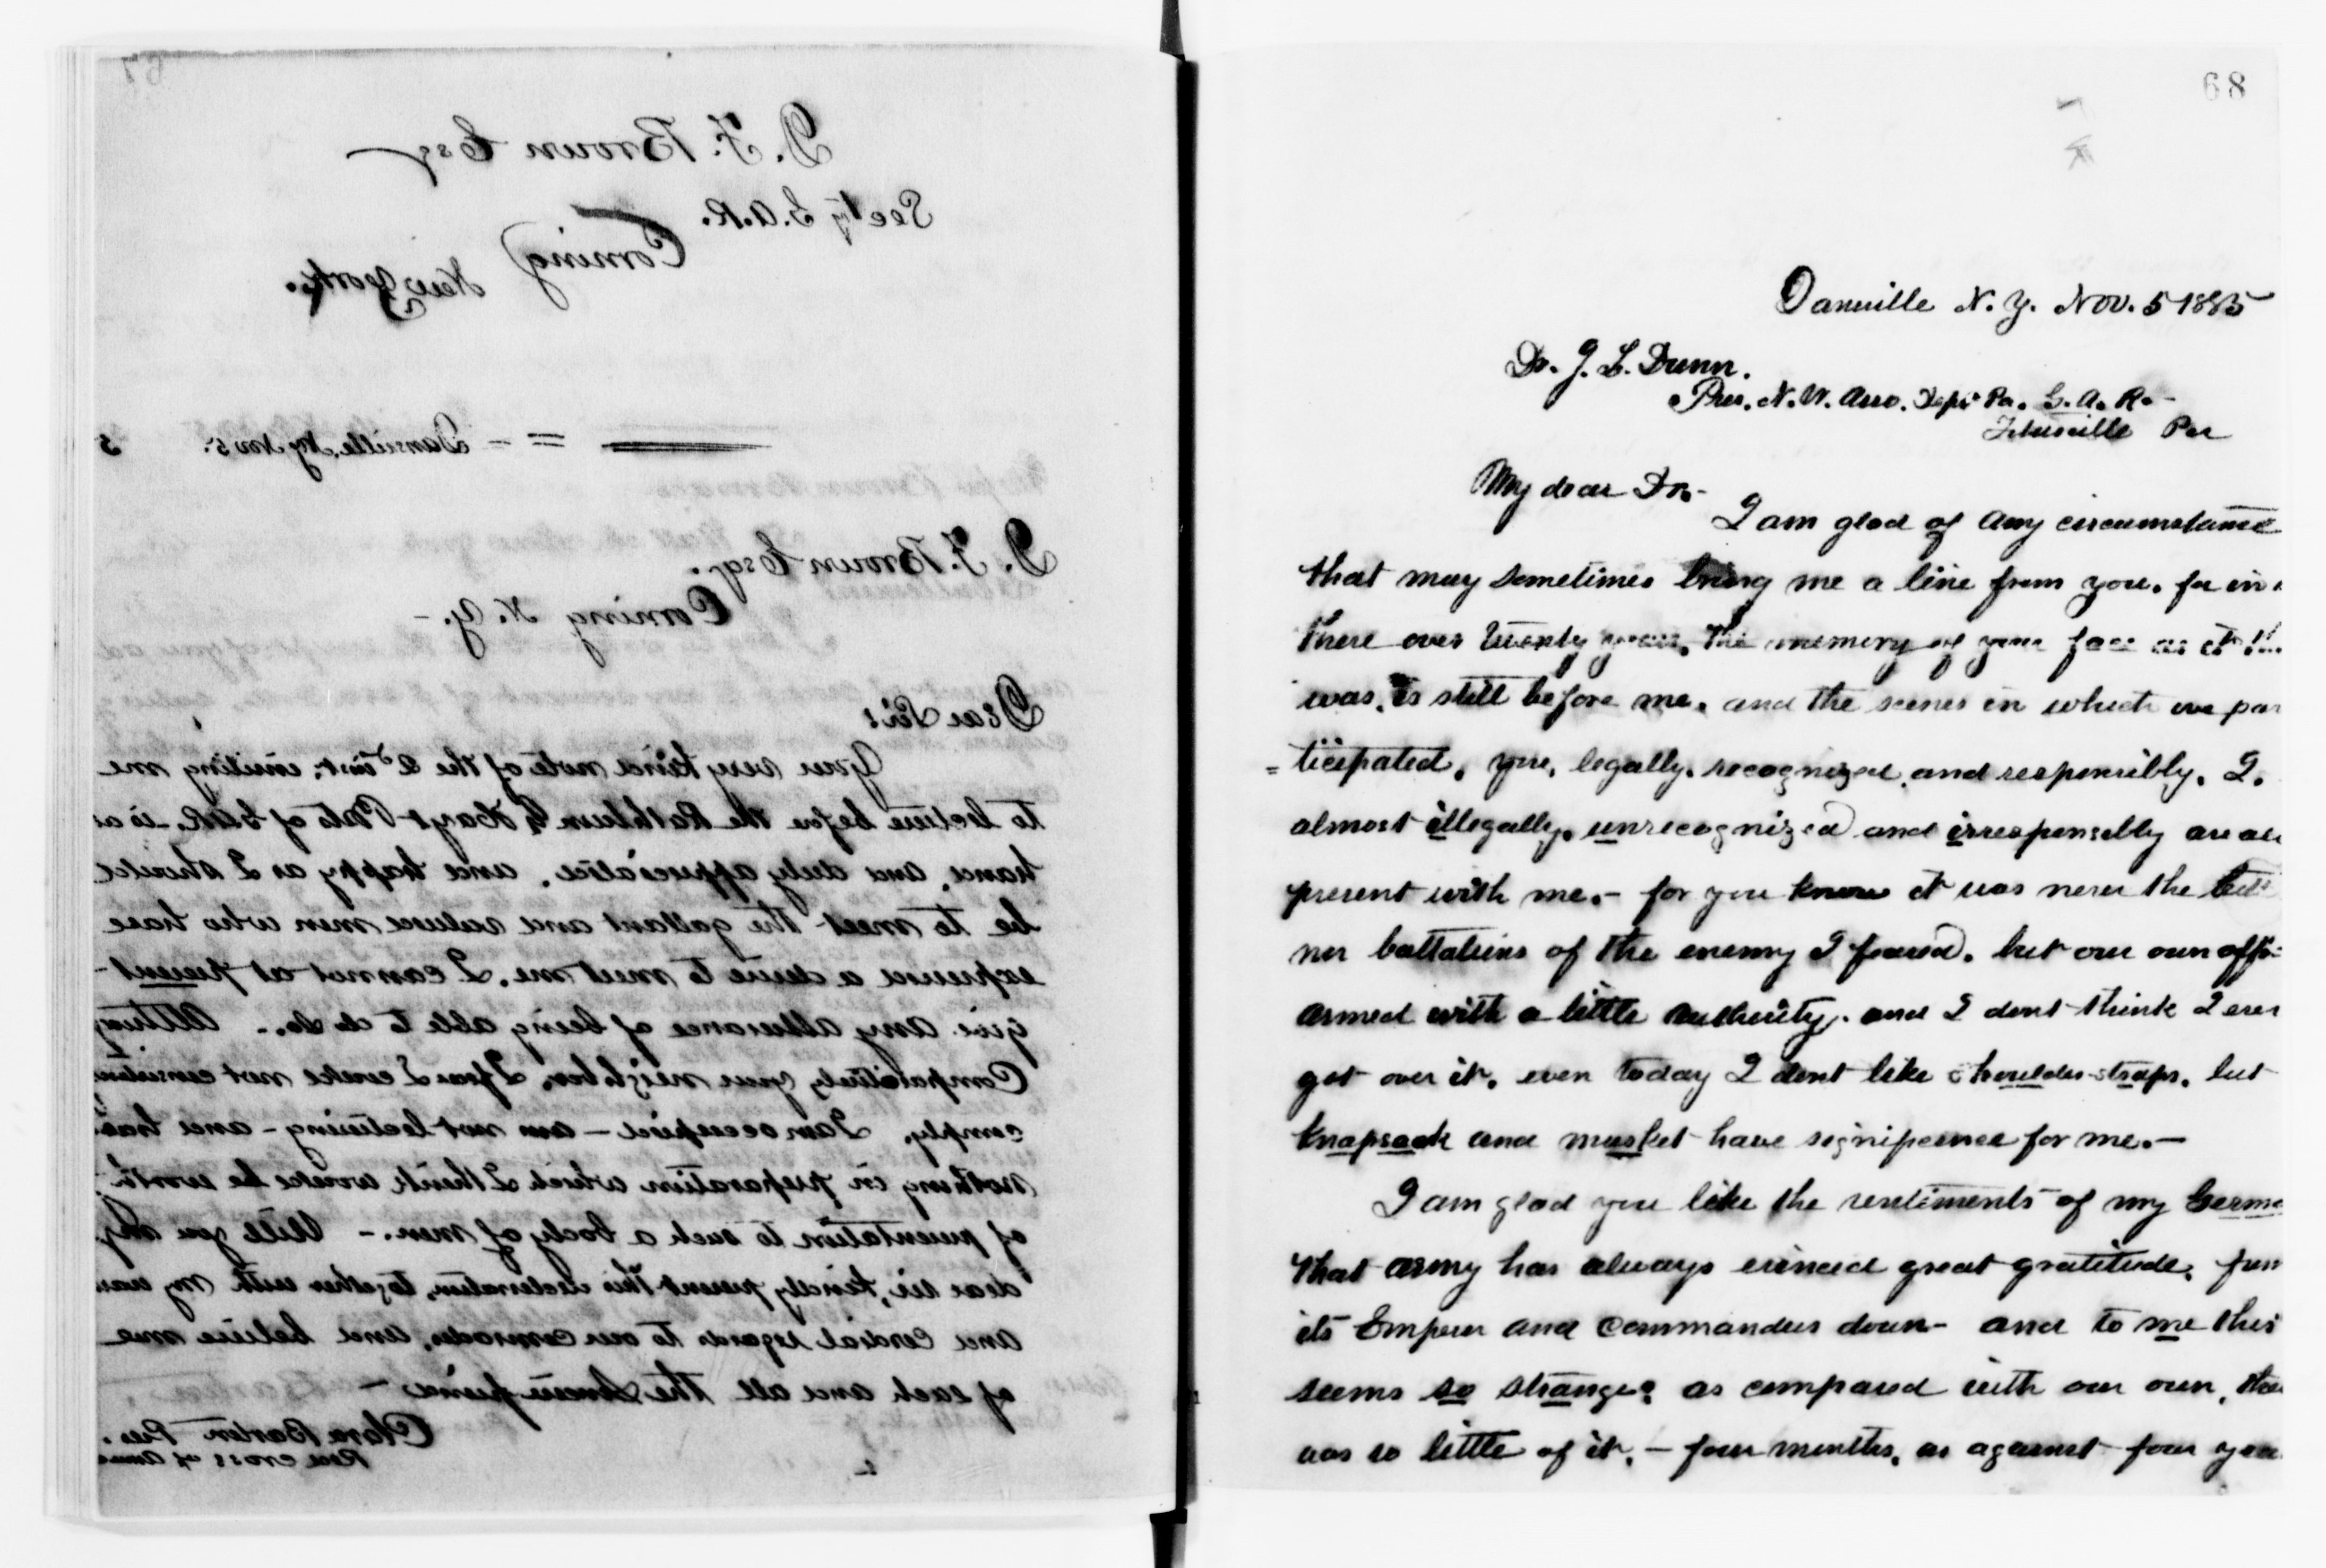 67
D. F. Brown Esq
Sec'ty G.A.R.
Corning
New York.
Dansville, NY Nov 5. 5
D. F. Brown Esq.
Corning N.Y. -
Dear Sir:
Your very kind note of the 2d inst. inviting me
to lecture before the Rathbun & Hayt Posts of G.A.R. is a
hand, and duly appreciated, and happy as I should
be to meet the gallant and valued men who have
expressed a desire to meet me. I cannot at present
give any assurance of being able to do so. - Althoug
Comparatively your neighbor, I fear I could not
comply. I am occupied - am not lecturing - and have
nothing in preparation which I think would be worth
of presentation to such a body of men. - Will you my
dear sir, kindly present this declination, together with my
and cordial regards to our comrades, and believe me
of each and all the Sincere friend -
Clara Barton Pres.
Red Cross of Amer
68
Dansville N. Y. Nov. 5 1885
Dr. J. L. Dunn.
Pres. N. W. Asso. Dept Pa. G. A. R. -
Titusville Pa
My dear Dr. -
I am glad of any circumstance
that may sometimes bring me a line from you. for in
there over twenty years, the memory of your face as it
was, is still before me, and the scenes in which we par
= ticipated. you, legally, recognized, and responsibly. I,
almost illegally, unrecognized and irresponsibly are all
present with me. - for you know it was never the
ner battalions of the enemy I feared. but our own offi
armed with a little authority. and I dont think I ever
got over it. even today I dont like shoulder straps. but
knapsack and musket have significance for me. -
I am glad you like the sentiments of my Germa
that army has always evinced great gratitude, from
its Emperor and Commanders down - and to me this
seems so strange; as compared with our own, the
was so little of it. - four months, as against four yea